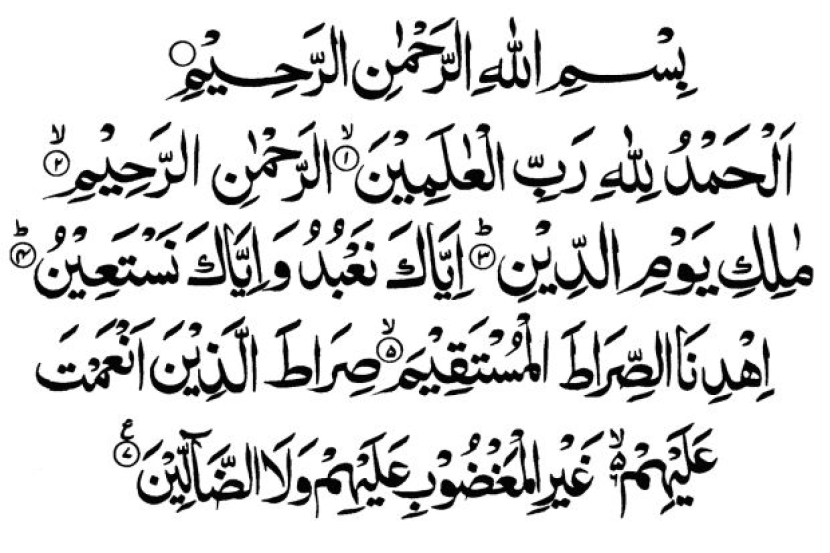 بِسْمِ اللهِ الرَّحْمٰنِ الرَّحِيْمِ ○
اَلْحَمْدُ لِلّٰهِ رَبِّ الْعٰلَمِيْنَ ۙ﴿۱﴾ الرَّحْمٰنِ الرَّحِيْمِ ۙ﴿۲﴾
مٰلِكِ يَوْمِ الدِّيْنِ ؕ﴿۳﴾ اِيَّاكَ نَعْبُدُ وَ اِيَّاكَ نَسْتَعِيْنُ ؕ﴿۴﴾
اِهْدِنَا الصِّرَاطَ الْمُسْتَقِيْمَ ۙ﴿۵﴾ صِرَاطَ الَّذِيْنَ اَنْعَمْتَ
عَلَيْهِمْ ۙ۬ غَيْرِ الْمَغْضُوْبِ عَلَيْهِمْ وَلَا الضَّآلِّيْنَ ﴿۷﴾ ع